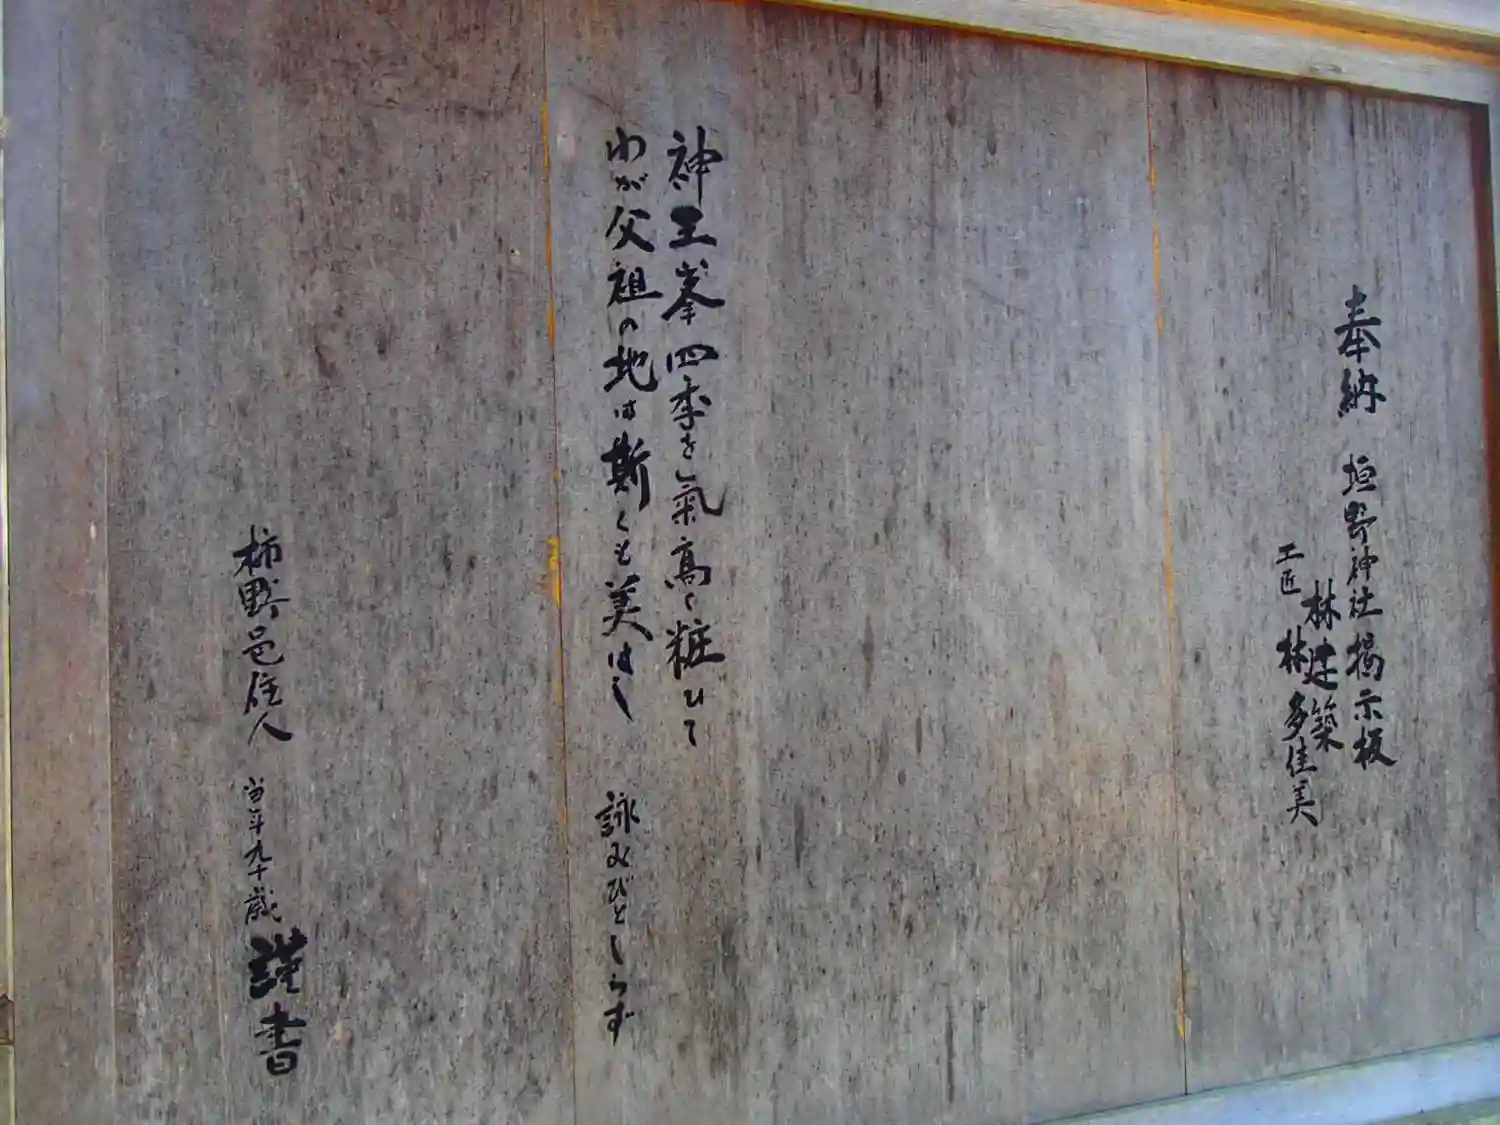 奉納 垣野神社掲示板
林建築
工匠 林多佳美
神王峯四季を氣高く粧ひて
わが父祖の地は斯くも美はし 詠みびとしらず
柿野邑住人 当年九十歳 謹書